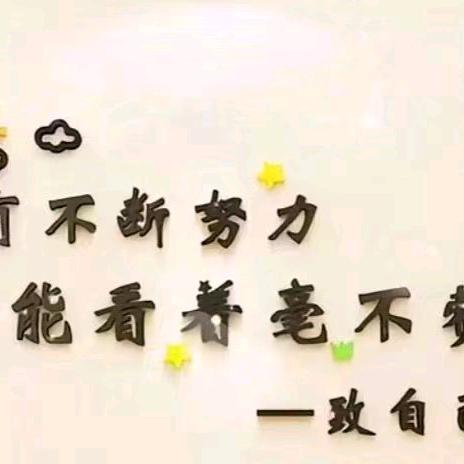 不断努力
能看着毫不
—致自